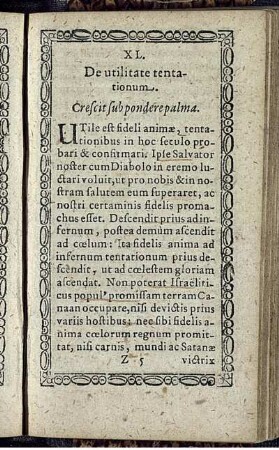 XL.
De utilitate tenta-
tionum.
Crescit sub pondere palma.
UTile est fideli animæ, tenta-
tionibus in hoc seculo pro-
bari & confirmari. Ipse Salvator
noster cum Diabolo in eremo lu-
ctari voluit, ut pro nobis & in no-
stram salutem eum superaret, ac
nostri certaminis fidelis proma-
chus esset. Descendit prius ad in-
fernum, postea demùm ascendit
ad cœlum: Ita fidelis anima ad
infernum tentationum prius de-
scendit, ut ad cœlestem gloriam
ascendat. Non poterat Israëliti-
cus popul' promissam terram Ca-
naan occupare, nisi devictis prius
variis hostibus: nec sibi fidelis a-
nima cœlorum regnum promit-
tat, nisi carnis, mundi ac Satanæ
Z 5 victrix